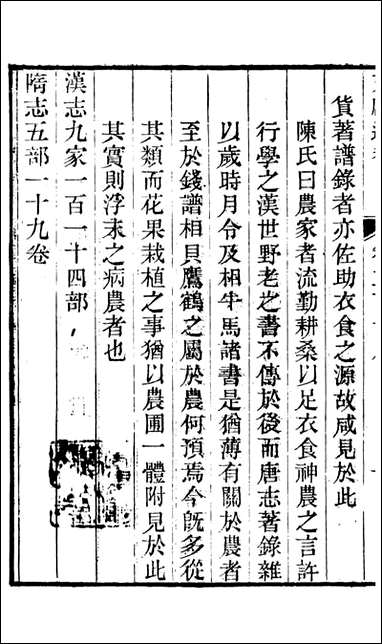 貨著譜錄者亦佐助衣食之源故咸見於此
陳氏曰農家者流勤耕桑以足衣食神農之言許
行學之漢世野老之書不傳於後而唐志著錄雜
以歲時月令及相牛馬諸書是猶薄有關於農者
至於錢譜相貝鷹鶴之屬於農何預焉今旣多從
其類而花果栽植之事猶以農圃一體附見於此
其實則浮末之病農者也
漢志九家一百一十四部
隋志五部一十九卷